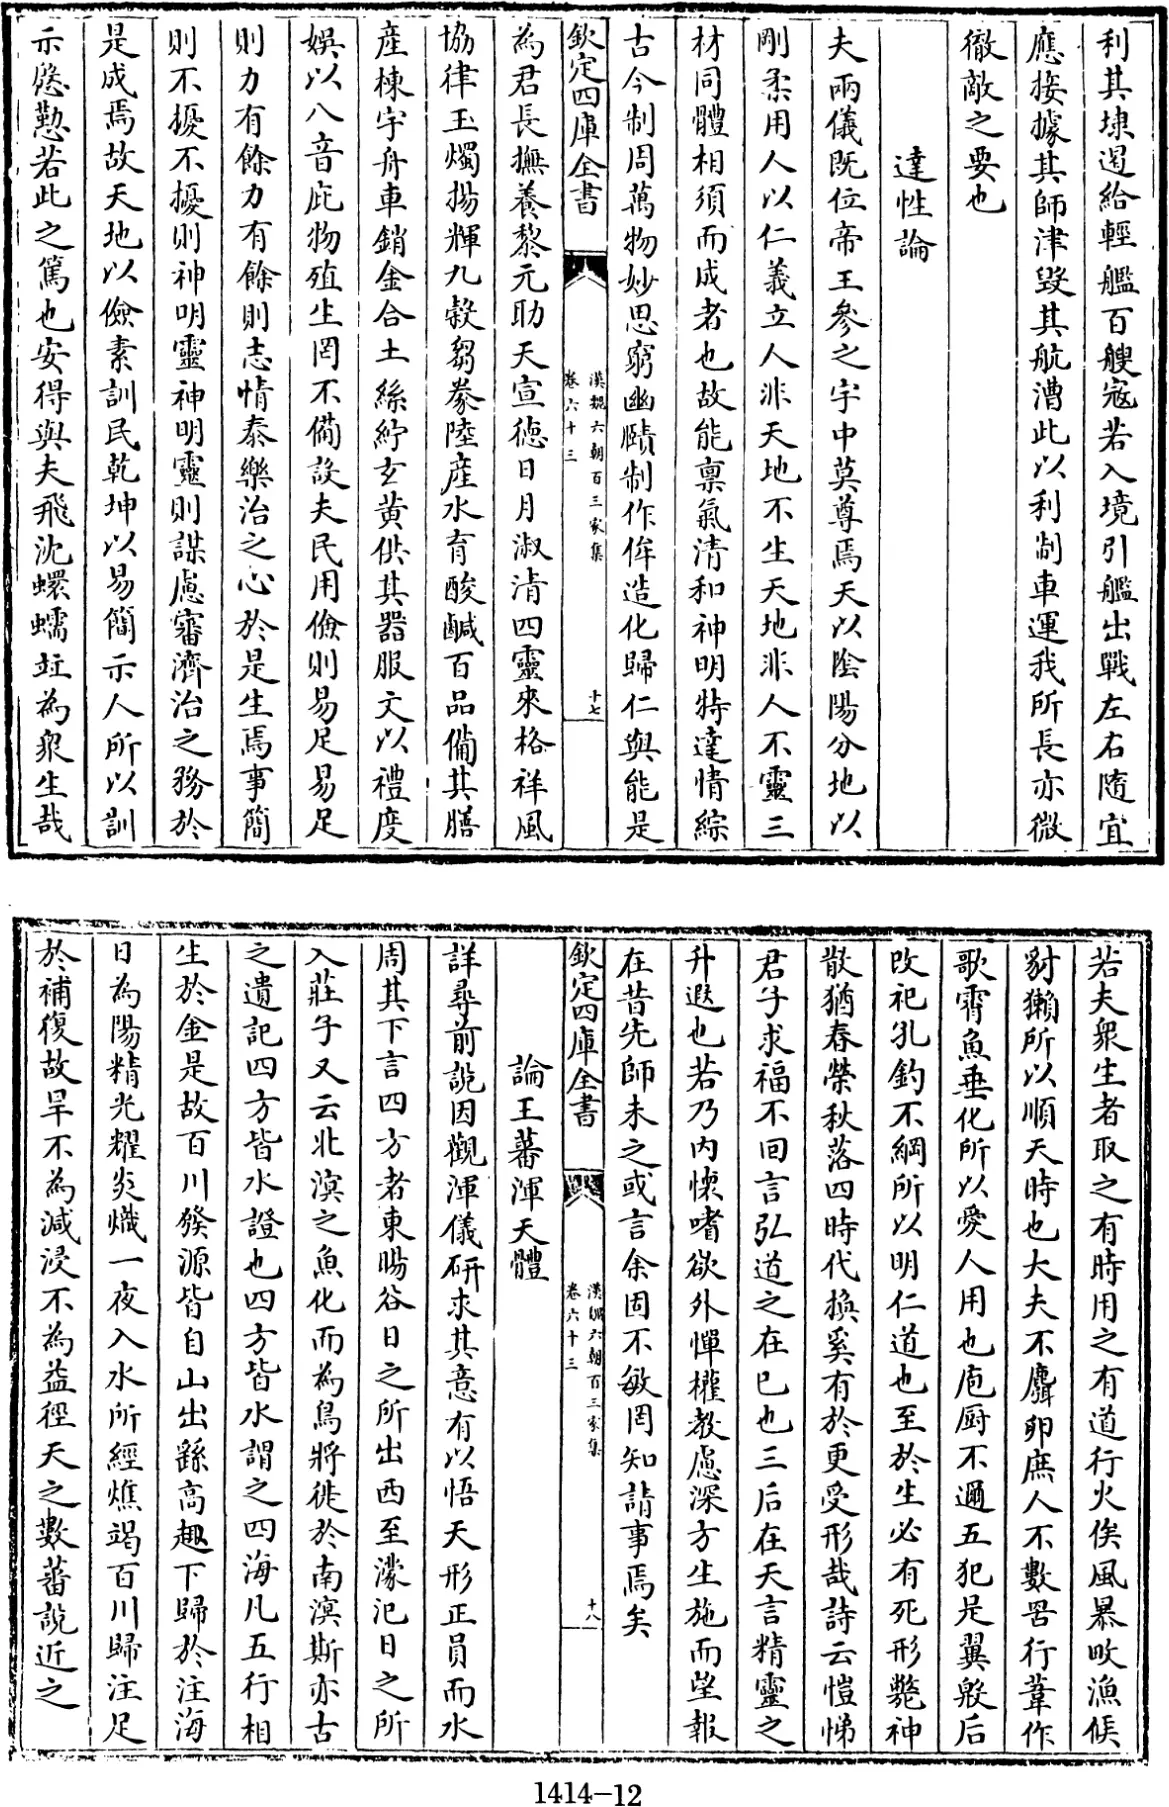 利其埭遏給輕艦百艘寇若入境引艦出戰左右隨宜
應接據其師津毀其航漕此以利制車運我所長亦微
徹敵之要也
達性論
夫兩儀既位帝王參之宇中莫尊焉天以陰陽分地以
剛柔用人以仁義立人非天地不生天地非人不靈三
材同體相須而成者也故能禀氣清和神明特達情綜
古今制周萬物妙思窮幽賾制作侔造化歸仁與能是
欽定四庫全書
漢魏六朝百三家集
卷六十三
十七
為君長撫養黎元助天宣德日月淑清四靈來格祥風
協律玉燭揚輝九穀芻豢陸産水育酸鹹百品備其膳
産棟宇舟車銷金合土絲紵玄黄供其器服文以禮度
娛以八音庇物殖生罔不備設夫民用儉則易足易足
則力有餘力有餘則志情泰樂治之心於是生焉事簡
則不擾不擾則神明靈神明靈則謀慮審濟治之務於
是成焉故天地以儉素訓民乾坤以易簡示人所以訓
示慇懃若此之篤也安得與夫飛沈蠉蠕竝為衆生哉
若夫衆生者取之有時用之有道行火俟風暴畋漁候
豺獺所以順天時也大夫不麛卵庶人不數罟行葦作
歌霄魚垂化所以愛人用也庖厨不邇五犯是翼殷后
改祀孔釣不綱所以明仁道也至於生必有死形斃神
散猶春榮秋落四時代換奚有於更受形哉詩云愷悌
君子求福不回言弘道之在已也三后在天言精靈之
升遐也若乃内懷嗜欲外憚權教慮深方生施而望報
在昔先師未之或言余固不敏罔知請事焉矣
欽定四庫全書
漢魏六朝百三家集
卷六十三
十八
論王蕃渾天體
詳尋前說因觀渾儀研求其意有以悟天形正員而水
周其下言四方者東暘谷日之所出西至濛汜日之所
入莊子又云北溟之魚化而為鳥將徙於南溟斯亦古
之遺記四方皆水證也四方皆水謂之四海凡五行相
生於金是故百川發源皆自山出繇高趣下歸於注海
日為陽精光耀炎熾一夜入水所經燋竭百川歸注足
於補復故旱不為減浸不為益徑天之數蕃說近之
1414-12